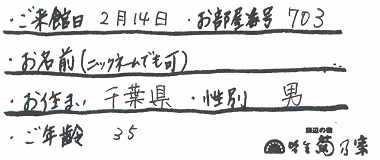 ・ご来館日 2月14日 ・お部屋番号 703
・お名前(ニックネームでも可)
・お住まい 千葉県 ・性別 男
・ご年齢 35
渡辺の宿
味な菊乃家